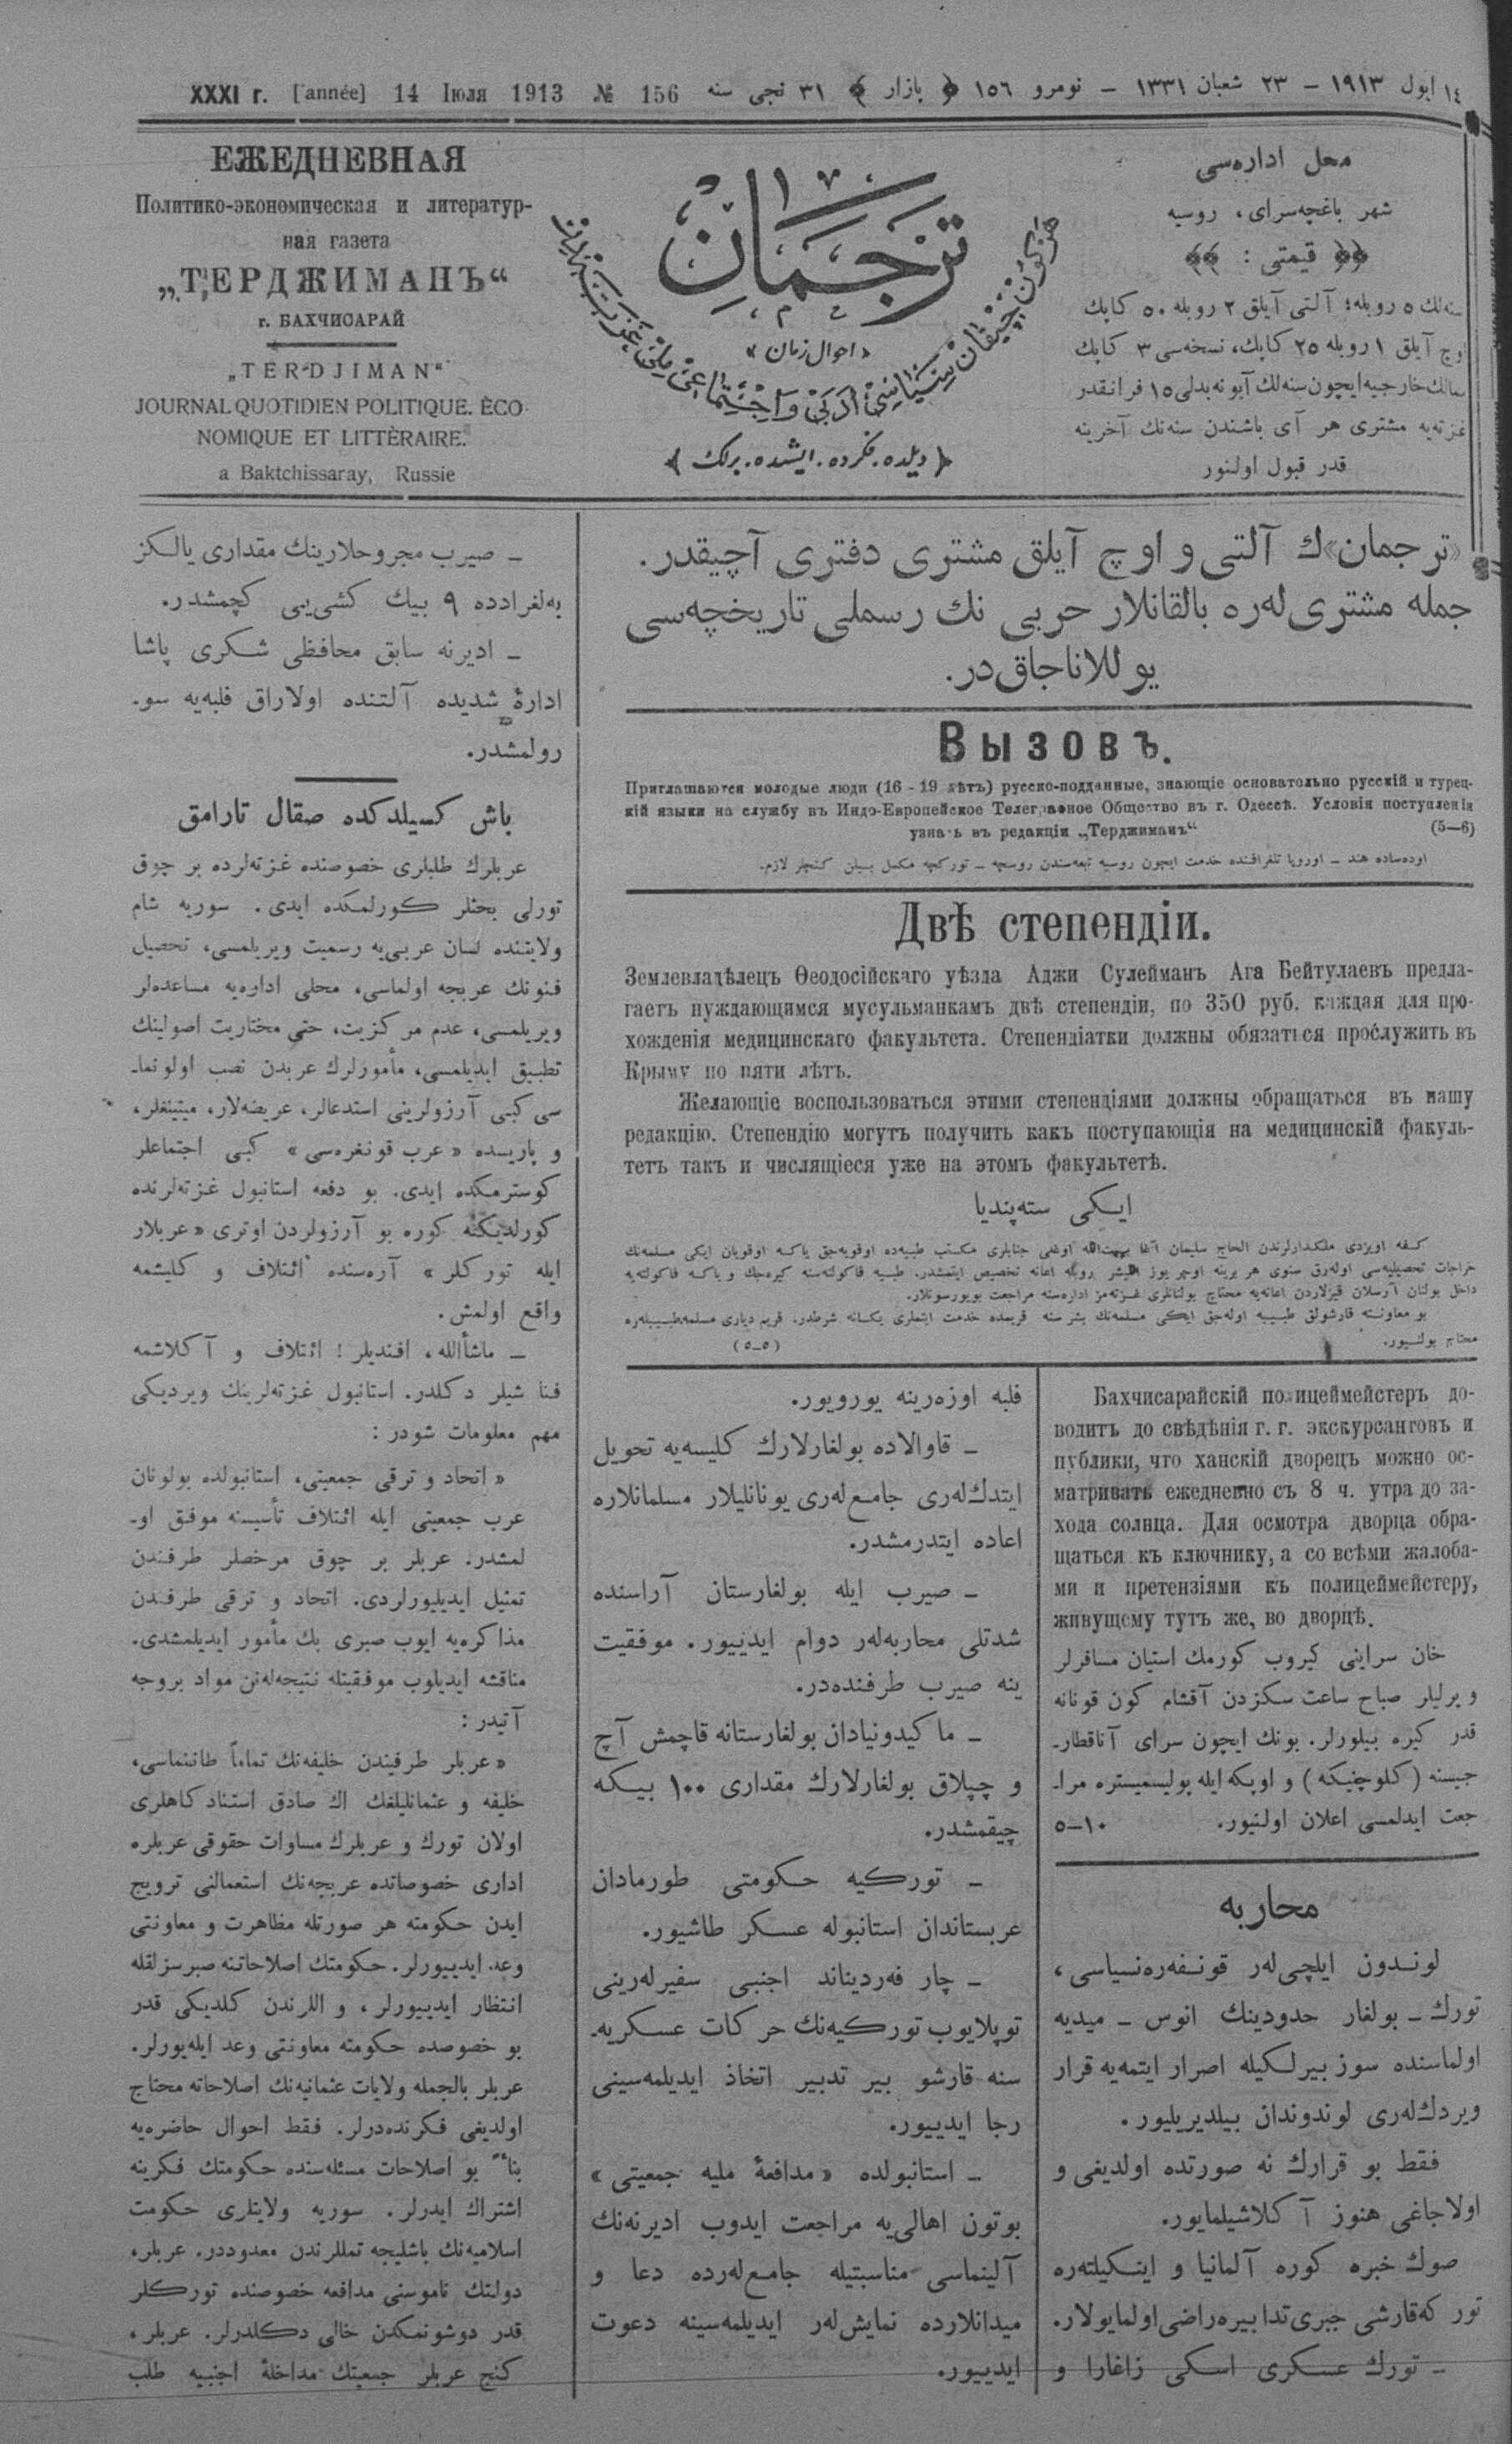 ١٤ ایول ١٩١٣ – ٢٣ شعبان ١٣٣١ – نومرو ١٥٦ ﴿ بازار ﴾ ٣١ نجی سنه
XXXI г. [année] 14 Іюля 1913 № 156
ЕЖЕДНЕВНАЯ
Политико-экономическая и литератур-
ная газета
„ТЕРДЖИМАНЪ“
г. БАХЧИСАРАЙ
„TERDJIMAN“
JOURNAL QUOTIDIEN POLITIQUE. ÈCO-
NOMIQUE ET LITTÈRAIRE.
a Baktchissaray, Russie
ترجمان
«احوال زمان»
هر كون چیقان سیاسی ادبی و اجتماعی ملی غزته‌در
﴿ دیلده. فكرده. ایشده. برلك ﴾
محل اداره‌سی
شهر باغچه‌سرای، روسیه
﴿﴿ قیمتی : ﴾﴾
سنه‌لك ٥ روبله؛ آلتی آیلق ٢ روبله ٥٠ كاپك
اوچ آیلق ١ روبله ٢٥ كاپك، نسخه‌سی ٣ كاپك
ممالك خارجیه ایچون سنه‌لك آبونه بدلی ١٥ فرانقدر
غزته‌یه مشتری هر آی باشندن سنه‌نك آخرینه
قدر قبول اولنور
«ترجمان»ك آلتی و اوچ آیلق مشتری دفتری آچیقدر.
جمله مشتری‌له‌ره بالقانلار حربی نك رسملی تاریخچه‌سی
یوللاناجاق‌در.
Вызовъ.
Приглашаются молодые люди (16 - 19 лѣтъ) русско-подданные, знающіе основательно русскій и турец-
кій языки на службу въ Индо-Европейское Телеграфное Общество въ г. Одессѣ. Условія поступленія
узнать въ редакціи „Терджиманъ“ (5—6)
اوده‌ساده هند – اوروپا تلغرافنده خدمت ایچون روسیه تبعه‌سندن روسچه – توركچه مكمل بیلن كنجلر لازم.
Двѣ степендіи.
Землевладѣлецъ Ѳеодосійскаго уѣзда Аджи Сулейманъ Ага Бейтулаевъ предла-
гаетъ нуждающимся мусульманкамъ двѣ степендіи, по 350 руб. каждая для про-
хожденія медицинскаго факультета. Степендіатки должны обязаться прослужить въ
Крыму по пяти лѣтъ.
Желающіе воспользоваться этими степендіями должны обращаться въ нашу
редакцію. Степендію могутъ получить какъ поступающія на медицинскій факуль-
тетъ такъ и числящіеся уже на этомъ факультетѣ.
ایكی سته‌پندیا
كفه اویزدی ملكدارلرندن الحاج سلیمان آغا بیت‌الله اوغلی جنابلری مكتب طبیه‌ده اوقویه‌جق یاكه اوقویان ایكی مسلمه‌نك
خراجات تحصیلیه‌سی اوله‌رق سنوی هر برینه اوچر یوز اللیشر روبله اعانه تخصیص ایتمشدر. طبیه فاكولته‌سنه كیره‌جك و یاكه فاكولته‌یه
داخل بولنان آرسلان قیزلاردن اعانه‌یه محتاج بولنانلری غزته‌مز اداره‌سنه مراجعت بویورسونلار.
بو معاونته قارشولق طبیبه اوله‌جق ایكی مسلمه‌نك بشر سنه قریمده خدمت ایتملری یكانه شرطدر. قریم دیاری مسلمه طبیبه‌لره
محتاج بولنیور. (٥–٥)
Бахчисарайскій полицеймейстеръ до-
водитъ до свѣдѣнія г. г. экскурсантовъ и
публики, что ханскій дворецъ можно ос-
матривать ежедневно съ 8 ч. утра до за-
хода солнца. Для осмотра дворца обра-
щаться къ ключнику, а со всѣми жалоба-
ми и претензіями къ полицеймейстеру,
живущему тутъ же, во дворцѣ.
خان سراینی كیروب كورمك استیان مسافرلر
و یرلیلر صباح ساعت سكزدن آقشام كون قونانه
قدر كیره بیلورلر. بونك ایچون سرای آناقطار-
جیسنه (كلوچنیكه) و اوپكه ایله پولیسمیستره مرا-
جعت ایدلمسی اعلان اولنیور. ١٠–٥
محاربه
لوندون ایلچی‌لەر قونفه‌ره‌نسیاسی،
تورك – بولغار حدودینك انوس – میدیه
اولماسنده سوز بیرلكیله اصرار ایتمه‌یه قرار
ویردك‌لەری لوندوندان بیلدیریلیور.
فقط بو قرارك نه صورتده اولدیغی و
اولاجاغی هنوز آكلاشیلمایور.
صوك خبره كوره آلمانیا و اینكیلته‌ره
توركه قارشی جبری تدابیره راضی اولمایولار.
– تورك عسكری اسكی زاغارا و
فلبه اوزه‌رینه یورویور.
– قاوالاده بولغارلارك كلیسه‌یه تحویل
ایتدك‌لەری جامع‌لەری یونانلیلار مسلمانلاره
اعاده ایتدرمشدر.
– صیرب ایله بولغارستان آراسنده
شدتلی محاربه‌لەر دوام ایدییور. موفقیت
ینه صیرب طرفنده‌در.
– ماكیدونیادان بولغارستانه قاچمش آچ
و چپلاق بولغارلارك مقداری ١٠٠ بیكه
چیقمشدر.
– توركیه حكومتی طورمادان
عربستاندان استانبوله عسكر طاشیور.
– چار فه‌ردیناند اجنبی سفیرلەرینی
توپلایوب توركیه‌نك حركات عسكریه-
سنه قارشو بیر تدبیر اتخاذ ایدیلمه‌سینی
رجا ایدییور.
– استانبولده «مدافعهٔ ملیه جمعیتی»
بوتون اهالی‌یه مراجعت ایدوب ادیرنه‌نك
آلینماسی مناسبتیله جامع‌لەرده دعا و
میدانلارده نمایش‌لەر ایدیلمه‌سینه دعوت
ایدییور.
– صیرب مجروحلارینك مقداری یالكز
به‌لغرادده ٩ بیك كشی‌یی كچمشدر.
– ادیرنه سابق محافظی شكری پاشا
ادارهٔ شدیده آلتنده اولاراق فلبه‌یه سو-
رولمشدر.
باش كسیلدكده صقال تارامق
عربلرك طلبلری خصوصنده غزته‌لرده بر چوق
تورلی بحثلر كورلمكده ایدی. سوریه شام
ولایتنده لسان عربی‌یه رسمیت ویریلمسی، تحصیل
فنونك عربجه اولماسی، محلی اداره‌یه مساعده‌لر
ویریلمسی، عدم مركزیت، حتی مختاریت اصولینك
تطبیق ایدیلمسی، مأمورلرك عربدن نصب اولونما-
سی كبی آرزولرینی استدعالر، عریضه‌لار، میتینغلر،
و پاریسده «عرب قونغره‌سی» كبی اجتماعلر
كوسترمكده ایدی. بو دفعه استانبول غزته‌لرنده
كورلدیكنه كوره بو آرزولردن اوتری «عربلار
ایله توركلر» آره‌سنده ائتلاف و كلیشمه
واقع اولمش.
– ماشأالله، افندیلر! ائتلاف و آكلاشمه
فنا شیلر دكلدر. استانبول غزته‌لرینك ویردیكی
مهم معلومات شودر:
«اتحاد و ترقی جمعیتی، استانبولده بولونان
عرب جمعیتی ایله ائتلاف تأسیسنه موفق او-
لمشدر. عربلر بر چوق مرخصلر طرفندن
تمثیل ایدیلیورلردی. اتحاد و ترقی طرفندن
مذاكره‌یه ایوب صبری بك مأمور ایدیلمشدی.
مناقشه ایدیلوب موفقیتله نتیجه‌لەنن مواد بروجه
آتیدر:
«عربلر طرفیندن خلیفه‌نك تماماً طانمماسی،
خلیفه و عثمانلیلغك اك صادق استنادكاهلری
اولان تورك و عربلرك مساوات حقوقی عربلره
اداری خصوصاتده عربجه‌نك استعمالنی ترویج
ایدن حكومته هر صورتله مظاهرت و معاونتی
وعد ایدییورلر. حكومتك اصلاحاتنه صبرسزلقله
انتظار ایدییورلر، و اللرندن كلدیكی قدر
بو خصوصده حكومته معاونتی وعد ایله‌یورلر.
عربلر بالجمله ولایات عثمانیه‌نك اصلاحاته محتاج
اولدیغی فكرنده‌درلر. فقط احوال حاضره‌یه
بناءً بو اصلاحات مسئله‌سنده حكومتك فكرینه
اشتراك ایدرلر. سوریه ولایتلری حكومت
اسلامیه‌نك باشلیجه تمللرندن معدوددر. عربلر،
دولتك ناموسنی مدافعه خصوصنده توركلر
قدر دوشونمكدن خالی دكلدرلر. عربلر،
كنج عربلر جمعیتك مداخلهٔ اجنبیه طلب